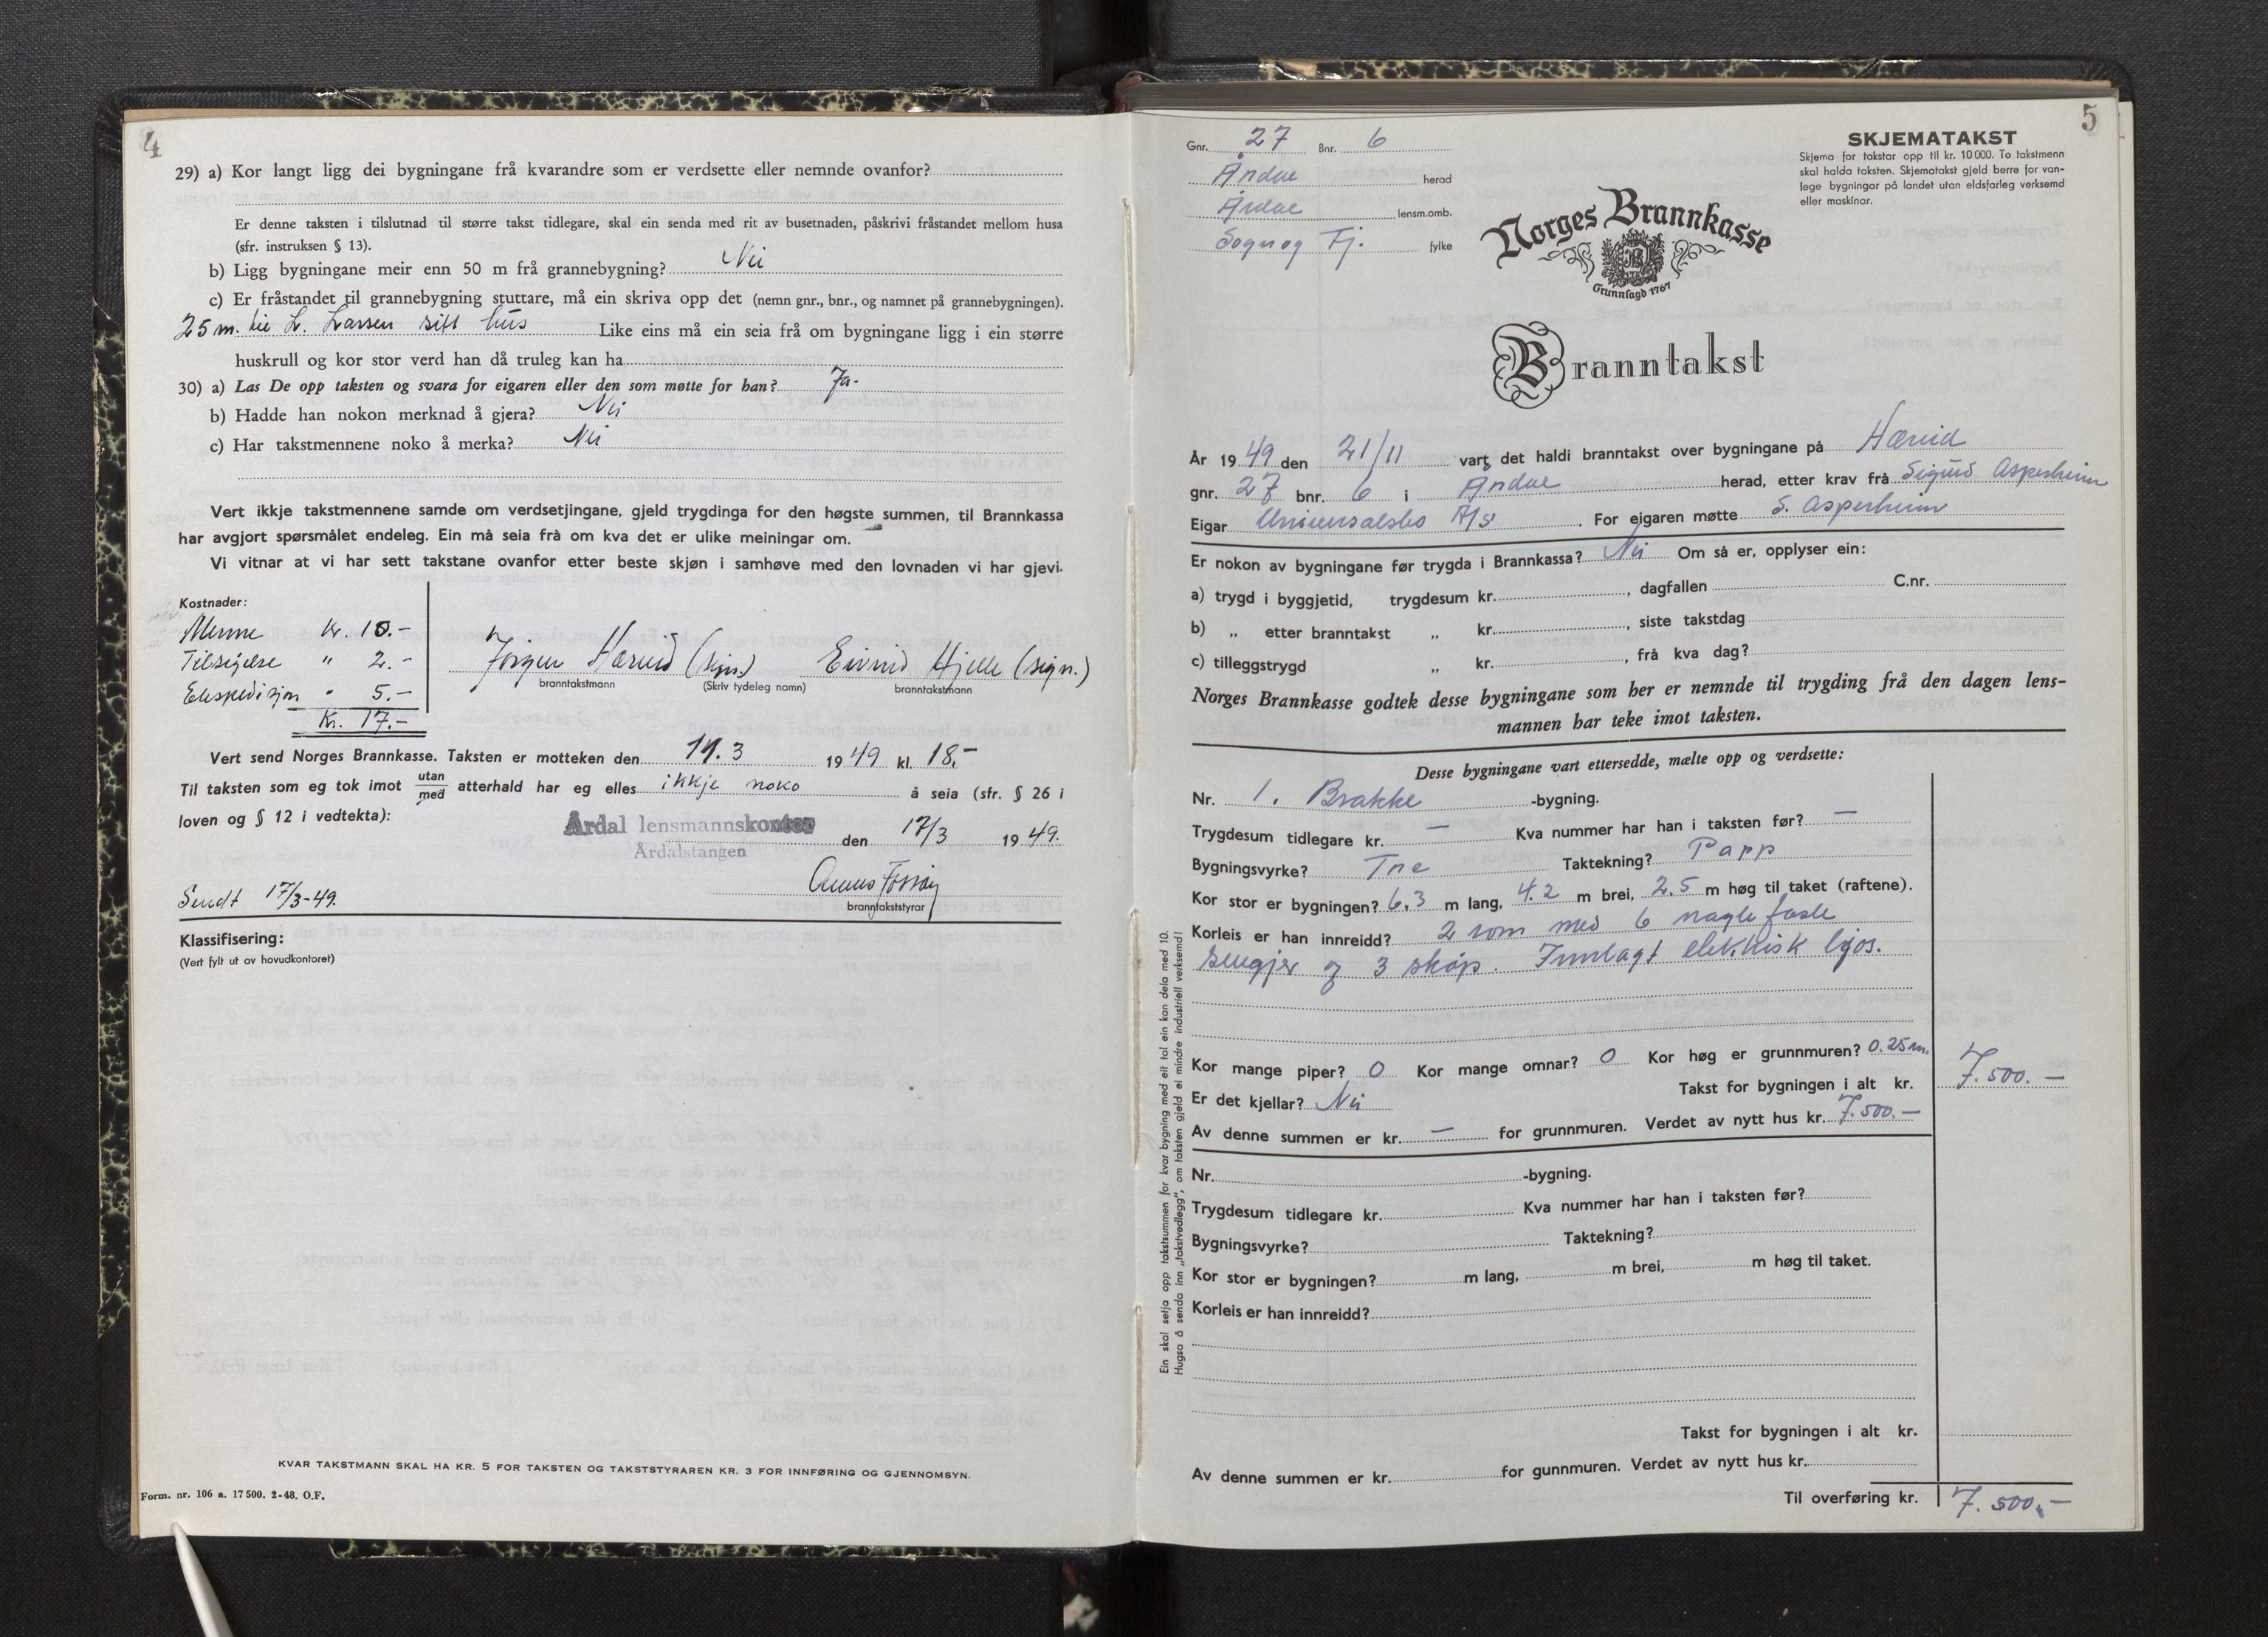 4
29) a) Kor langt ligg dei bygningane frå kvarandre som er verdsette eller nemnde ovanfor?
Er denne taksten i tilslutnad til større takst tidlegare, skal ein senda med rit av busetnaden, påskrivi fråstandet mellom husa
(sfr. instruksen § 13).
b) Ligg bygningane meir enn 50 m frå grannebygning? Nei
c) Er fråstandet til grannebygning stuttare, må ein skriva opp det (nemn gnr., bnr., og namnet på grannebygningen).
25 m. til L. Larsen sitt hus Like eins må ein seia frå om bygningane ligg i ein større
huskrull og kor stor verd han då truleg kan ha
30) a) Las De opp taksten og svara for eigaren eller den som møtte for han? Ja.
b) Hadde han nokon merknad å gjera? Nei
c) Har takstmennene noko å merka? Nei
Vert ikkje takstmennene samde om verdsetjingane, gjeld trygdinga for den høgste summen, til Brannkassa
har avgjort spørsmålet endeleg. Ein må seia frå om kva det er ulike meiningar om.
Vi vitnar at vi har sett takstane ovanfor etter beste skjøn i samhøve med den lovnaden vi har gjevi.
Kostnader:
Menne kr. 10.-
Tilsigelse " 2.-
Ekspedisjon " 5.-
Kr. 17.-
Jørgen Hæreid (sign.) Eivind Hjelle (sign.)
branntakstmann (Skriv tydeleg namn) branntakstmann
Vert send Norges Brannkasse. Taksten er motteken den 17.3 1949 kl. 18,-
Til taksten som eg tok imot utan/med atterhald har eg elles ikkje noko å seia (sfr. § 26 i
loven og § 12 i vedtekta):
Årdal lensmannskontor
Årdalstangen
den 17/3 1949.
branntakststyrar
Sendt 17/3-49.
Klassifisering:
(Vert fylt ut av hovudkontoret)
KVAR TAKSTMANN SKAL HA KR. 5 FOR TAKSTEN OG TAKSTSTYRAREN KR. 3 FOR INNFØRING OG GJENNOMSYN.
Form. nr. 106 a. 17 500. 2-48. O.F.
5
Gnr. 27 Bnr. 6
Årdal herad
Årdal lensm.omb.
Sogn og Fj. fylke
SKJEMATAKST
Skjema for takstar opp til kr. 10 000. To takstmenn
skal halda taksten. Skjematakst gjeld berre for van-
lege bygningar på landet utan eldsfarleg verksemd
eller maskinar.
Norges Brannkasse
Grunnlagd 1767
Branntakst
År 1949 den 21/11 vart det haldi branntakst over bygningane på Hæreid
gnr. 27 bnr. 6 i Årdal herad, etter krav frå Sigurd Asperheim
Eigar Universalsbo A/S. For eigaren møtte S. Asperheim
Er nokon av bygningane før trygda i Brannkassa? Nei Om så er, opplyser ein:
a) trygd i byggjetid, trygdesum kr., dagfallen C.nr.
b) „ etter branntakst „ kr., siste takstdag
c) tilleggstrygd „ kr., frå kva dag?
Norges Brannkasse godtek desse bygningane som her er nemnde til trygding frå den dagen lens-
mannen har teke imot taksten.
Desse bygningane vart ettersedde, mælte opp og verdsette:
Nr. 1. Brakke -bygning.
Trygdesum tidlegare kr. — Kva nummer har han i taksten før? —
Bygningsvyrke? Tre Taktekning? Papp
Kor stor er bygningen? 6.3 m lang, 4.2 m brei, 2.5 m høg til taket (raftene).
Korleis er han innreidd? 2 rom med 6 nagle faste
sengjer og 3 skåp. Innlagt elektrisk ljos.
Kor mange piper? 0 Kor mange omnar? 0 Kor høg er grunnmuren? 0.25 m.
Er det kjellar? Nei Takst for bygningen i alt kr. 7.500.—
Av denne summen er kr. — for grunnmuren. Verdet av nytt hus kr. 7.500.—
Nr. -bygning.
Trygdesum tidlegare kr. Kva nummer har han i taksten før?
Bygningsvyrke? Taktekning?
Kor stor er bygningen? m lang, m brei, m høg til taket.
Korleis er han innreidd?
Takst for bygningen i alt kr.
Av denne summen er kr. for gunnmuren. Verdet av nytt hus kr.
Til overføring kr. 7.500.—
Ein skal setja opp takstsummen for kvar bygning med eit tal ein kan dela med 10.
Hugsa å senda inn „takstvedlegg", om taksten gjeld ei mindre industriell verksemd!